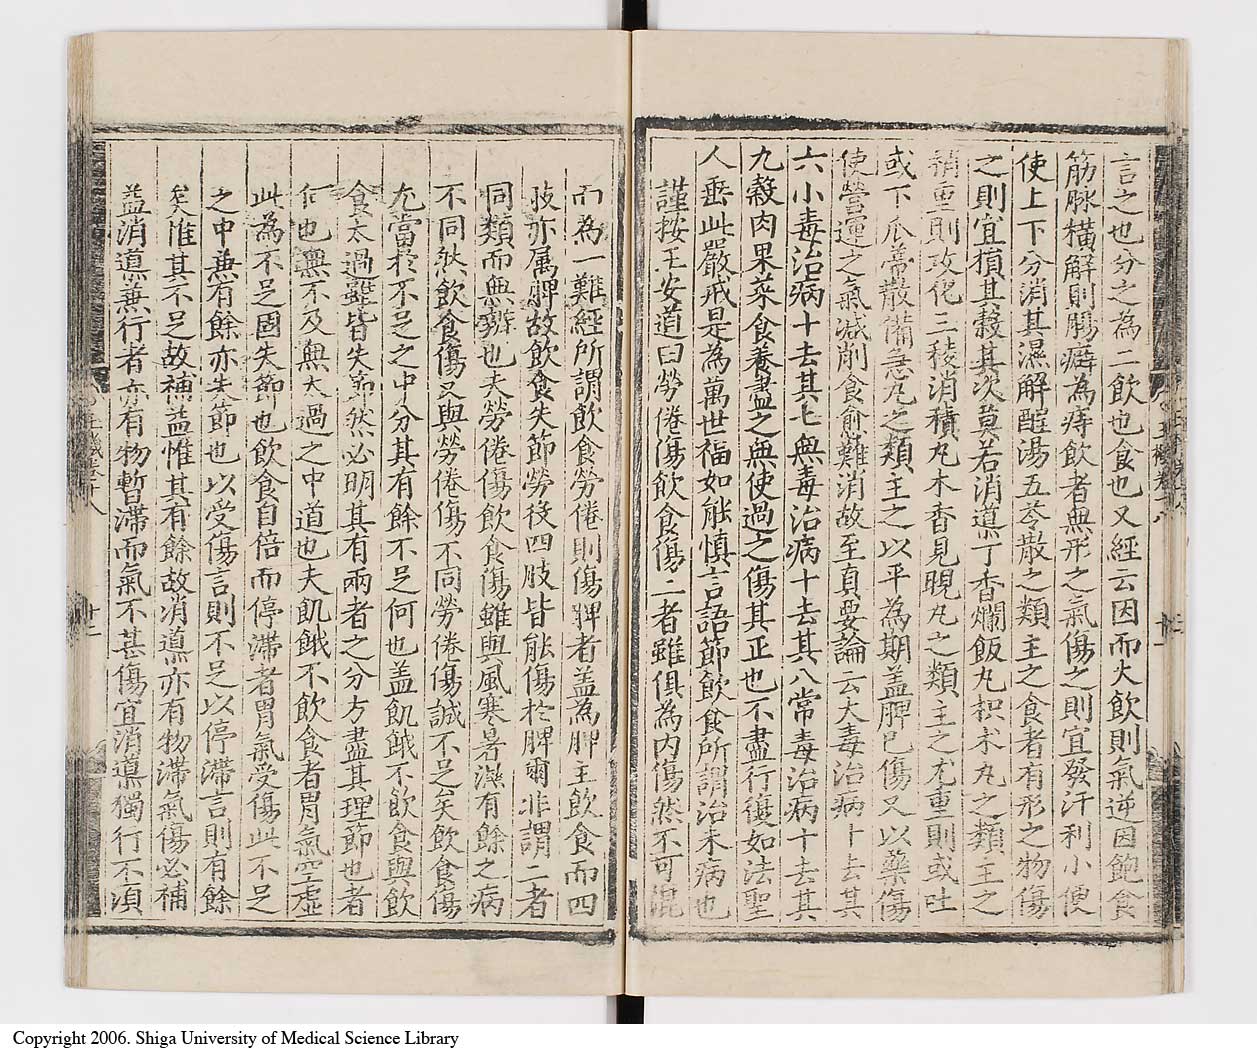 言之也分之為二飲也食也又經云因而大飲則氣逆因飽食
筋脉橫解則腸癖為痔飲者無形之氣傷之則宜發汗利小便
使上下分消其濕解酲湯五苓散之類主之食者有形之物傷
之則宜損其穀其次莫若消導丁香爛飯丸枳朮丸之類主之
稍重則攻化三稜消積丸木香見睍丸之類主之尤重則或吐
或下瓜蔕散備急丸之類主之以平為期盖脾已傷又以藥傷
使營運之氣减削食愈難消故至真要論云大毒治病十去其
六小毒治病十去其七無毒治病十去其八常毒治病十去其
九穀肉果菜食養盡之無使過之傷其正也不盡行復如法聖
人垂此嚴戒是為萬世福如能慎言語節飲食所謂治未病也
謹按王安道曰勞倦傷飲食傷二者雖俱為內傷然不可混
而為一難經所謂飲食勞倦則傷脾者盖為脾主飲食而四
肢亦属脾故飲食失節勞役四肢皆能傷於脾爾非謂二者
同類而無辯也夫勞倦傷飲食傷雖與風寒暑濕有餘之病
不同然飲食傷又與勞倦傷不同勞倦傷誠不足矣飲食傷
尤當於不足之中分其有餘不足何也盖飢餓不飲食與飲
食太過雖皆失節然必明其有兩者之分方盡其理節也者
何也無不及無太過之中道也夫飢餓不飲食者胃氣空虛
此為不足固失節也飲食自倍而停滯者胃氣受傷此不足
之中兼有餘亦失節也以受傷言則不足以停滯言則有餘
矣惟其不足故補益惟其有餘故消導亦有物滯氣傷必補
益消導兼行者亦有物暫滯而氣不甚傷宜消導獨行不湏
Copyright 2006. Shiga University of Medical Science Library